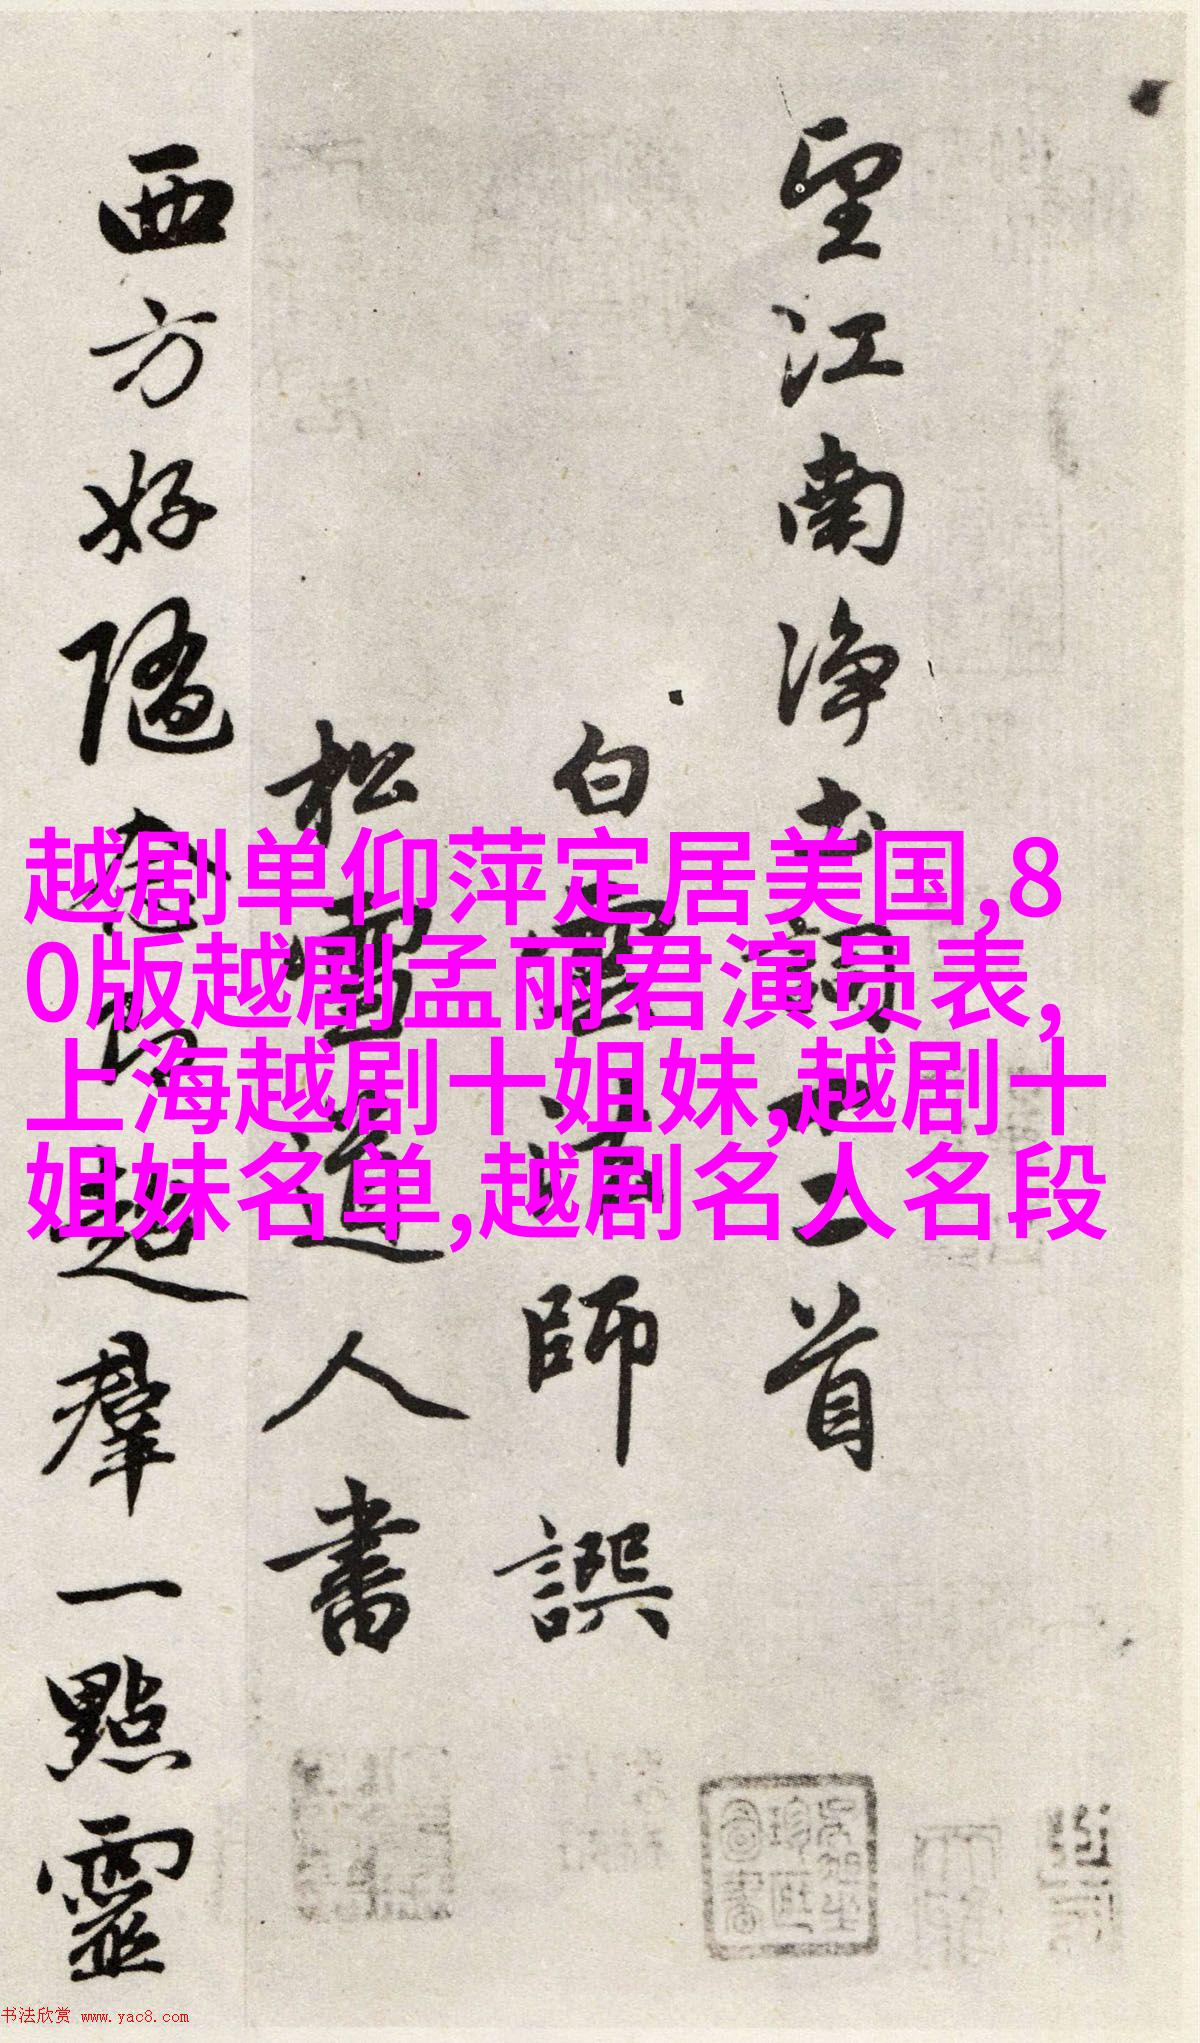 望江南淨土詞十二首
白雲法師譔
松雪道人書
西方好隨念即超羣一點靈
越剧单仰萍定居美国,8
0版越剧孟丽君演员表,
上海越剧十姐妹,越剧十
姐妹名单,越剧名人名段
书法欣赏 www.yac8.com